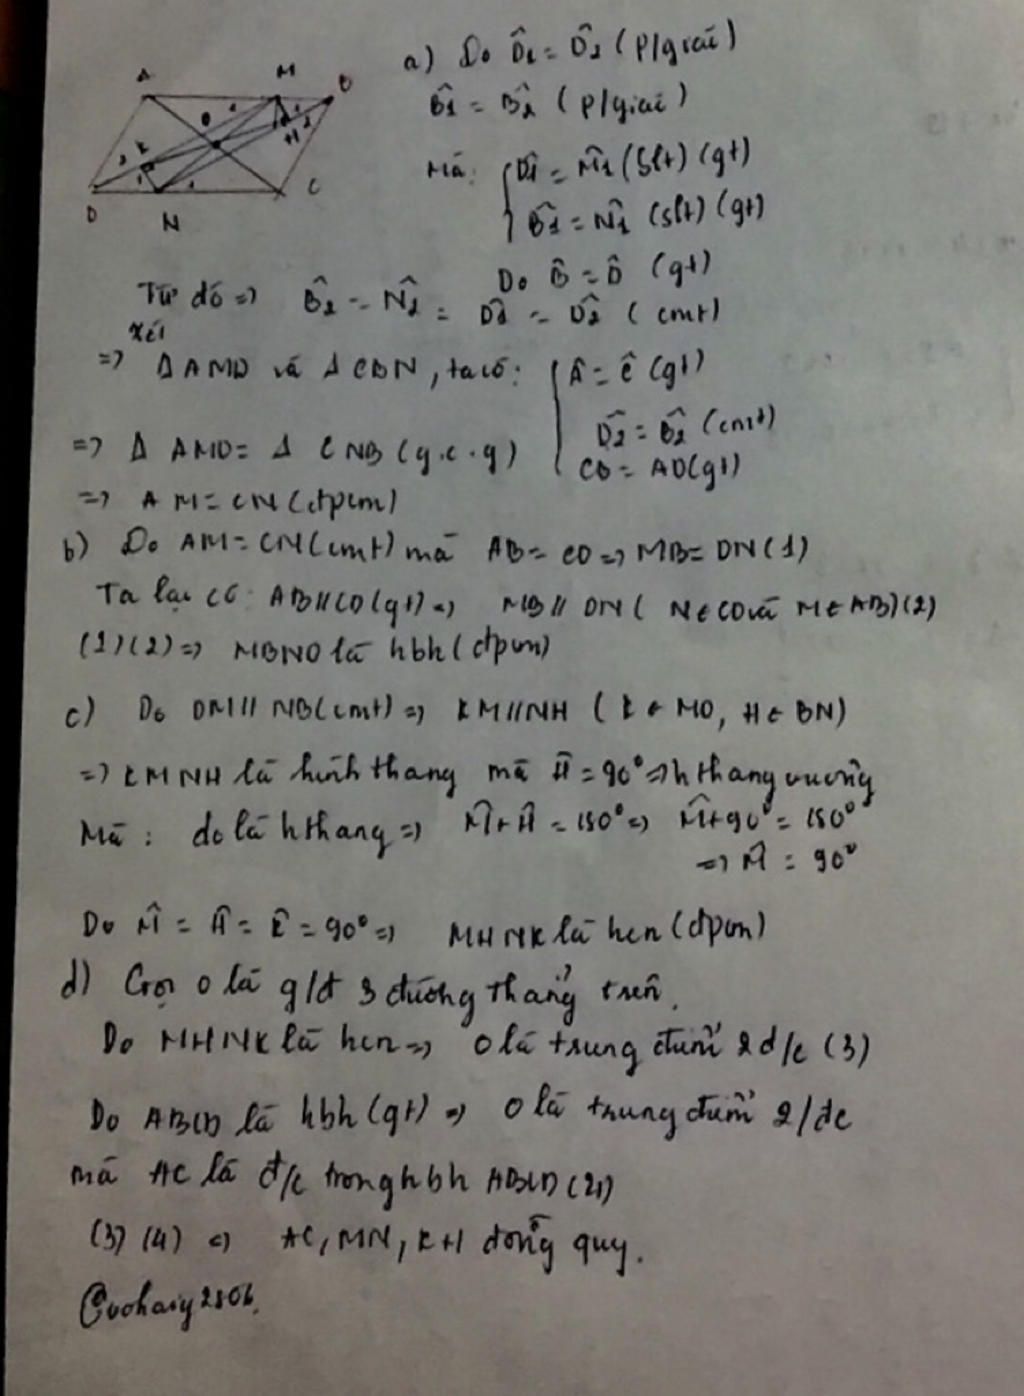 A M B
O
H
K
D N C
a) Do D̂1 = D̂2 (p/giác)
B̂1 = B̂2 (p/giác)
Mà: D̂1 = M̂1 (slt) (gt)
B̂1 = N̂1 (slt) (gt)
Do B̂ = D̂ (gt)
Từ đó => B̂2 = N̂2 = D̂1 = D̂2 (cmt)
Xét
=> Δ AMD và Δ CBN, ta có: Â = Ĉ (gt)
D̂2 = B̂2 (cmt)
=> Δ AMD = Δ CNB (g.c.g)
CB = AD (gt)
=> AM = CN (đpcm)
b) Do AM = CN (cmt) mà AB = CD => MB = DN (1)
Ta lại có: AB // CD (gt) => MB // DN ( N ∈ CD và M ∈ AB) (2)
(1) (2) => MBND là hbh (đpcm)
c) Do DM // NB (cmt) => KM // NH ( K ∈ MD, H ∈ BN)
=> KMNH là hình thang mà Ĥ = 90° => h thang vuông
Mà : do là hthang => M̂ + Ĥ = 180° => M̂ + 90° = 180°
=> M̂ = 90°
Do M̂ = Ĥ = K̂ = 90° => MHNK là hcn (đpcm)
d) Gọi O là g/đ 3 đường thẳng trên.
Do MHNK là hcn => O là trung điểm 2 đ/c (3)
Do ABCD là hbh (gt) => O là trung điểm 2/đc
mà AC là đ/c trong hbh ABCD (4)
(3) (4) => AC, MN, KH đồng quy.